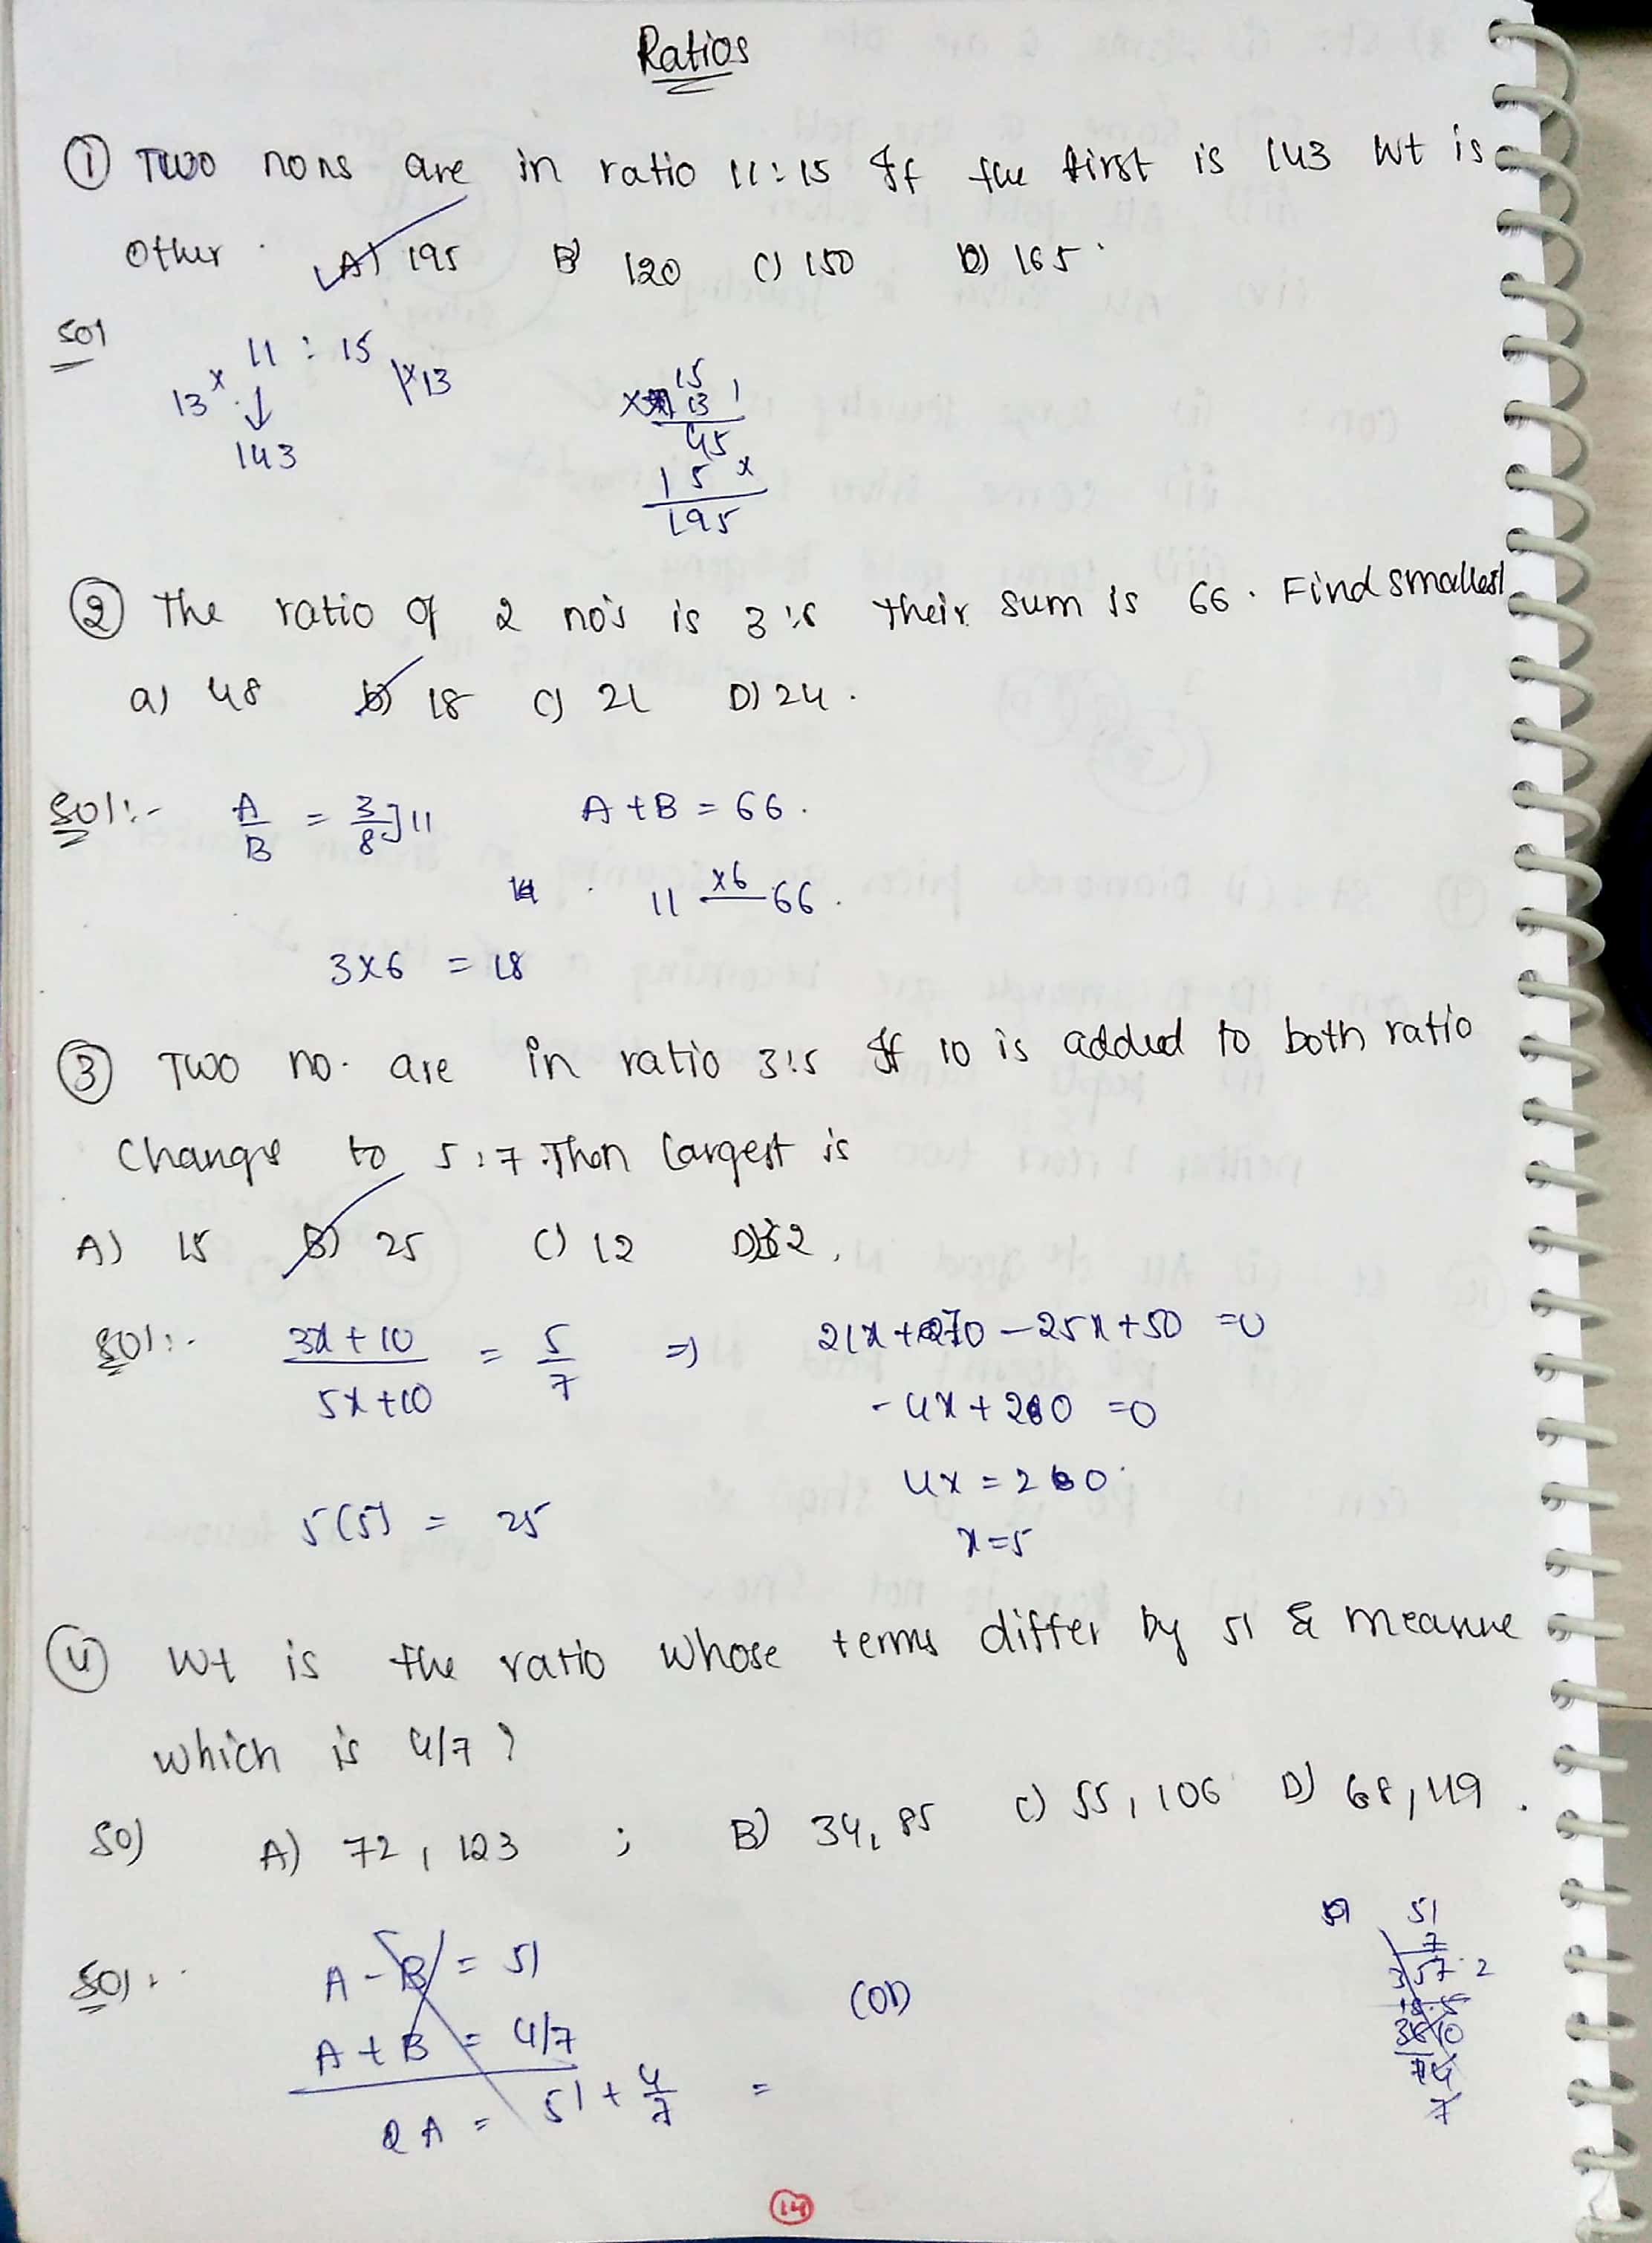 Ratios
① Two nons are in ratio 11:15 If the first is 143 wt is
other. A) 195 B) 120 C) 150 D) 165.
Sol 11 : 15
13 x x13
143
15
13
45
15x
195
② The ratio of 2 no's is 3:8 their sum is 66. Find smallest
a) 48 b) 18 c) 21 D) 24.
Sol:- A/B = 3/8] 11 A+B = 66.
11 x6 66.
3x6 = 18
③ Two no. are in ratio 3:5 If 10 is added to both ratio
Changs to 5:7. Then largest is
A) 15 B) 25 C) 12 D) 62.
Sol:- 3x+10/5x+10 = 5/7 => 21x+70-25x+50 =0
-4x+20 =0
4x = 20
5(5) = 25
x=5
④ Wt is the ratio whose terms differ by 51 & measure
which is 4/7?
So) A) 72, 123 ; B) 34, 85 C) 55, 106 D) 68, 119.
Sol:- A-B = 51
A+B = 4/7
2A = 51 + 4/7 =
(OR)
51
7
357
14